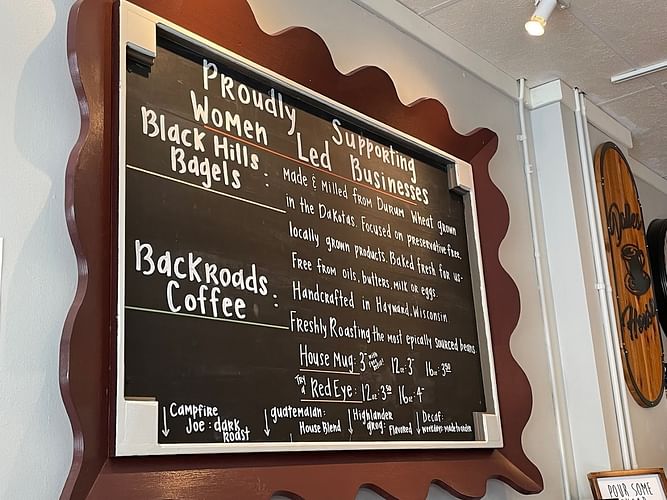 Proudly Supporting
Women Led Businesses
Black Hills Bagels :
Made & Milled from Durum Wheat grown
in the Dakotas. Focused on preservative free.
locally grown products. Baked fresh for us-
Free from oils, butters, milk or eggs.
Backroads Coffee :
Handcrafted in Hayward, Wisconsin.
Freshly Roasting the most epically sourced beans
House Mug: 3 12oz: 3 16oz: 3
Try a Red Eye: 12oz 3 16oz: 4
↓ Campfire Joe: dark Roast
↓ guatemalan: House Blend
↓ Highlander grog: flavored
↓ Decaf:
House
POUR SOME